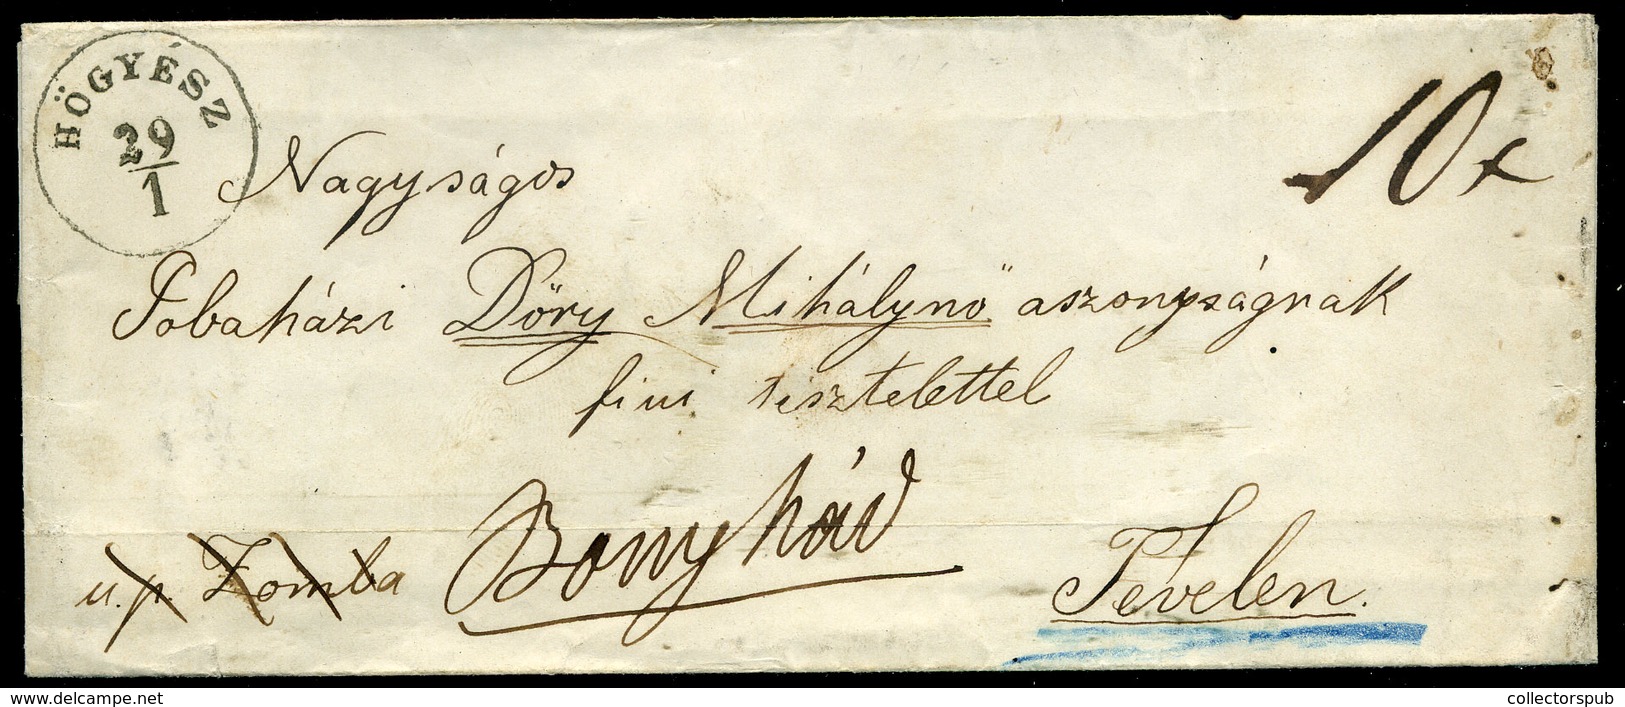 HÖGYÉSZ
29
1
10x
Nagyságos
Jobaházi Dőry Mihálynö aszonyságnak
fiui tisztelettel
u.p. Zomba
Bonyhád
Tevelen.
www.delcampe.net
collectorspub